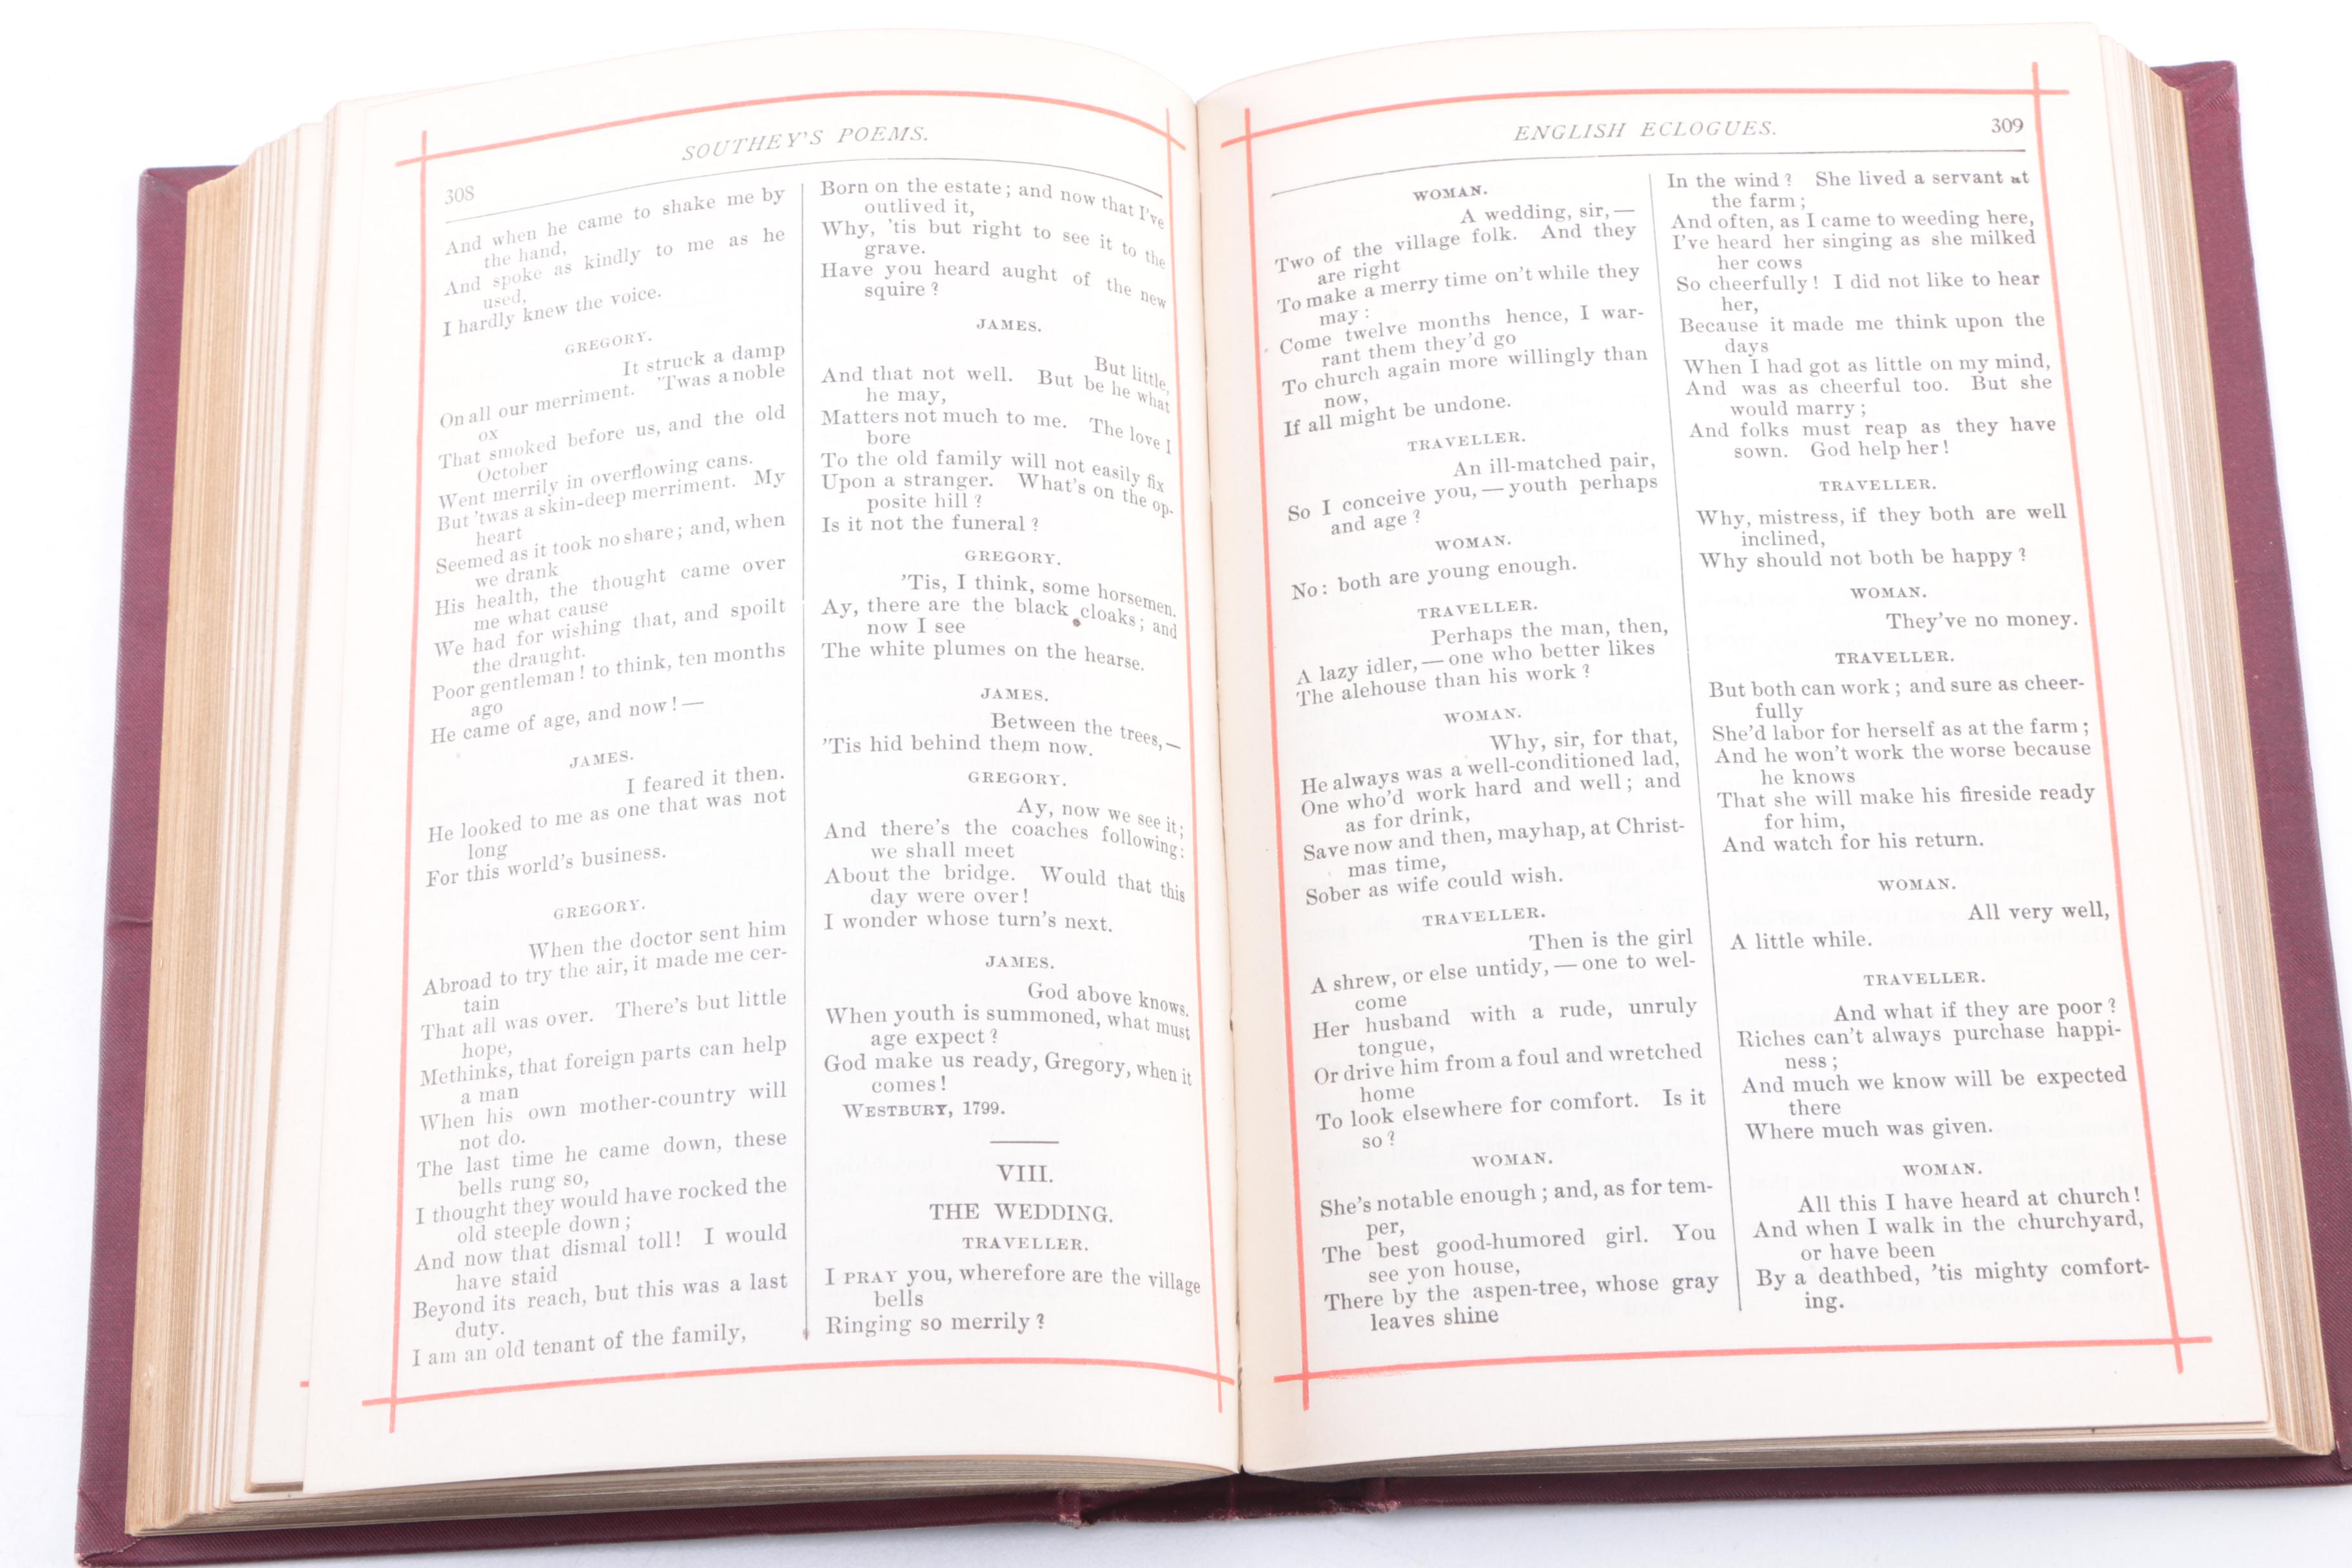 SOUTHEY'S POEMS.
308
And when he came to shake me by
the hand,
And spoke as kindly to me as he
used,
I hardly knew the voice.
GREGORY.
It struck a damp
On all our merriment. 'Twas a noble
ox
That smoked before us, and the old
October
Went merrily in overflowing cans.
But 'twas a skin-deep merriment. My
heart
Seemed as it took no share; and, when
we drank
His health, the thought came over
me what cause
We had for wishing that, and spoilt
the draught.
Poor gentleman! to think, ten months
ago
He came of age, and now!—
JAMES.
I feared it then.
He looked to me as one that was not
long
For this world's business.
GREGORY.
When the doctor sent him
Abroad to try the air, it made me cer-
tain
That all was over. There's but little
hope,
Methinks, that foreign parts can help
a man
When his own mother-country will
not do.
The last time he came down, these
bells rung so,
I thought they would have rocked the
old steeple down;
And now that dismal toll! I would
have staid
Beyond its reach, but this was a last
duty.
I am an old tenant of the family,
Born on the estate; and now that I've
outlived it,
Why, 'tis but right to see it to the
grave.
Have you heard aught of the new
squire?
JAMES.
But little,
And that not well. But be he what
he may,
Matters not much to me. The love I
bore
To the old family will not easily fix
Upon a stranger. What's on the op-
posite hill?
Is it not the funeral?
GREGORY.
'Tis, I think, some horsemen.
Ay, there are the black cloaks; and
now I see
The white plumes on the hearse.
JAMES.
Between the trees,—
'Tis hid behind them now.
GREGORY.
Ay, now we see it;
And there's the coaches following:
we shall meet
About the bridge. Would that this
day were over!
I wonder whose turn's next.
JAMES.
God above knows.
When youth is summoned, what must
age expect?
God make us ready, Gregory, when it
comes!
WESTBURY, 1799.
VIII.
THE WEDDING.
TRAVELLER.
I PRAY you, wherefore are the village
bells
Ringing so merrily?
ENGLISH ECLOGUES.
309
WOMAN.
A wedding, sir,—
Two of the village folk. And they
are right
To make a merry time on't while they
may:
Come twelve months hence, I war-
rant them they'd go
To church again more willingly than
now,
If all might be undone.
TRAVELLER.
An ill-matched pair,
So I conceive you,—youth perhaps
and age?
WOMAN.
No: both are young enough.
TRAVELLER.
Perhaps the man, then,
A lazy idler,—one who better likes
The alehouse than his work?
WOMAN.
Why, sir, for that,
He always was a well-conditioned lad,
One who'd work hard and well; and
as for drink,
Save now and then, mayhap, at Christ-
mas time,
Sober as wife could wish.
TRAVELLER.
Then is the girl
A shrew, or else untidy,—one to wel-
come
Her husband with a rude, unruly
tongue,
Or drive him from a foul and wretched
home
To look elsewhere for comfort. Is it
so?
WOMAN.
She's notable enough; and, as for tem-
per,
The best good-humored girl. You
see yon house,
There by the aspen-tree, whose gray
leaves shine
In the wind? She lived a servant at
the farm;
And often, as I came to weeding here,
I've heard her singing as she milked
her cows
So cheerfully! I did not like to hear
her,
Because it made me think upon the
days
When I had got as little on my mind,
And was as cheerful too. But she
would marry;
And folks must reap as they have
sown. God help her!
TRAVELLER.
Why, mistress, if they both are well
inclined,
Why should not both be happy?
WOMAN.
They've no money.
TRAVELLER.
But both can work; and sure as cheer-
fully
She'd labor for herself as at the farm;
And he won't work the worse because
he knows
That she will make his fireside ready
for him,
And watch for his return.
WOMAN.
All very well,
A little while.
TRAVELLER.
And what if they are poor?
Riches can't always purchase happi-
ness;
And much we know will be expected
there
Where much was given.
WOMAN.
All this I have heard at church!
And when I walk in the churchyard,
or have been
By a deathbed, 'tis mighty comfort-
ing.